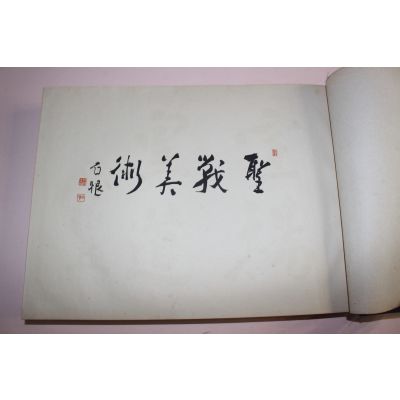 聖戰美術